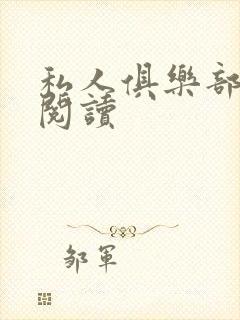 私人俱樂部
閱讀
鄒軍